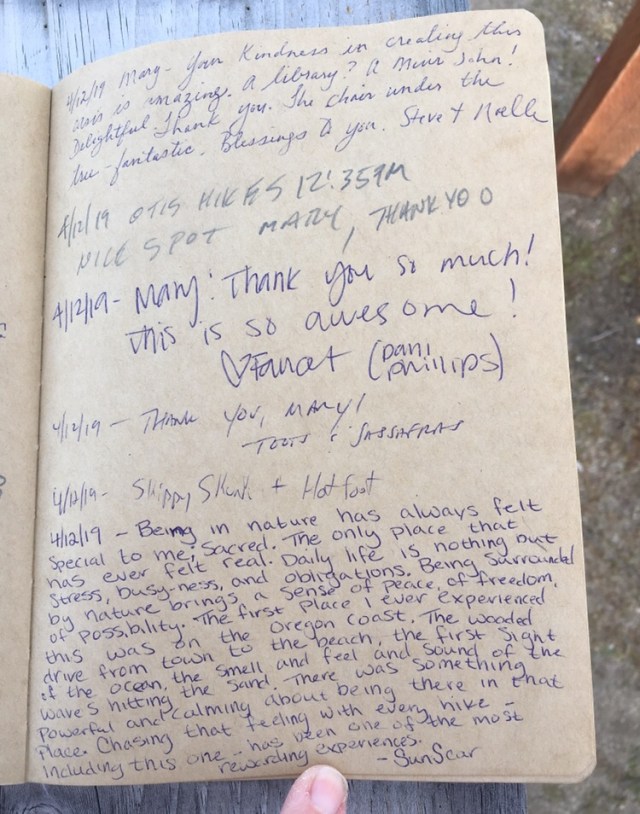 4/12/19 Mary - your Kindness in creating this
oasis is amazing. A library? A Muir John!
Delightful. Thank you. The chair under the
tree - fantastic. Blessings to you. Steve + Noelle
4/12/19 OTIS HIKES 12:35PM
NICE SPOT MARY, THANK YOU
4/12/19 - Mary: Thank you so much!
This is so awesome!
♡Faucet (Dani Phillips)
4/12/19 - THANK YOU, MARY!
TOOTS & SASSAFRAS
4/12/19 - Skippy Skunk + Hot foot
4/12/19 - Being in nature has always felt
special to me; sacred. The only place that
has ever felt real. Daily life is nothing but
stress, busy-ness, and obligations. Being surrounded
by nature brings a sense of peace, of freedom,
of possibility. The first place I ever experienced
this was on the Oregon coast. The wooded
drive from town to the beach, the first sight
of the ocean, the smell and feel and sound of the
waves hitting the sand. There was something
powerful and calming about being there in that
place. Chasing that feeling with every hike -
including this one - has been one of the most
rewarding experiences.
- SunScar